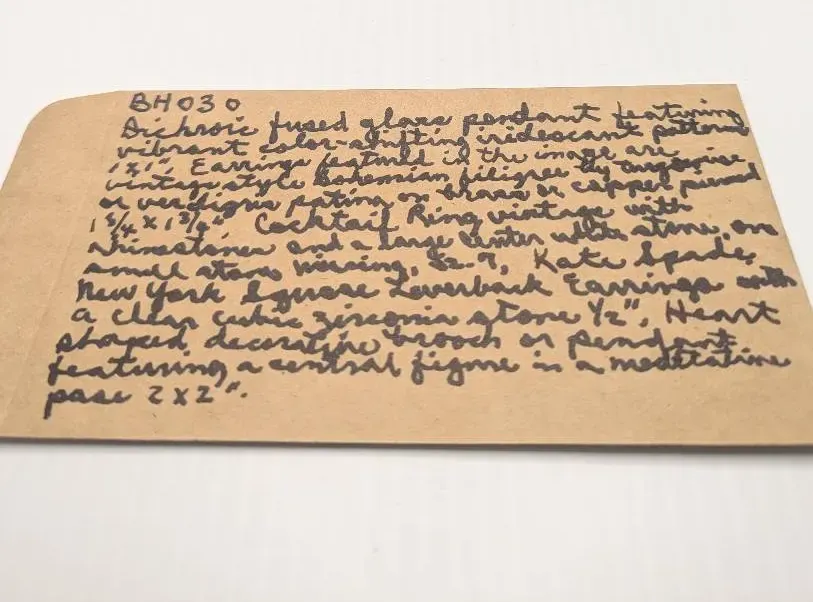 BH030
Dichroic fused glass pendant featuring
vibrant color-shifting iridescent pattern
1x1". Earrings featured in the image are
vintage style Bohemian filigree by turquoise
or verdigris patina on brass or copper pierced
1 3/4 x 1 3/4". Cocktail Ring vintage with
rhinestones and a large center white stone, one
small stone missing, Sz. 9, Kate Spade,
New York Square Leverback Earrings with
a clear cubic zirconia stone 1/2", Heart
shaped decorative brooch or pendant
featuring a central figure in a meditative
pose 2x2".